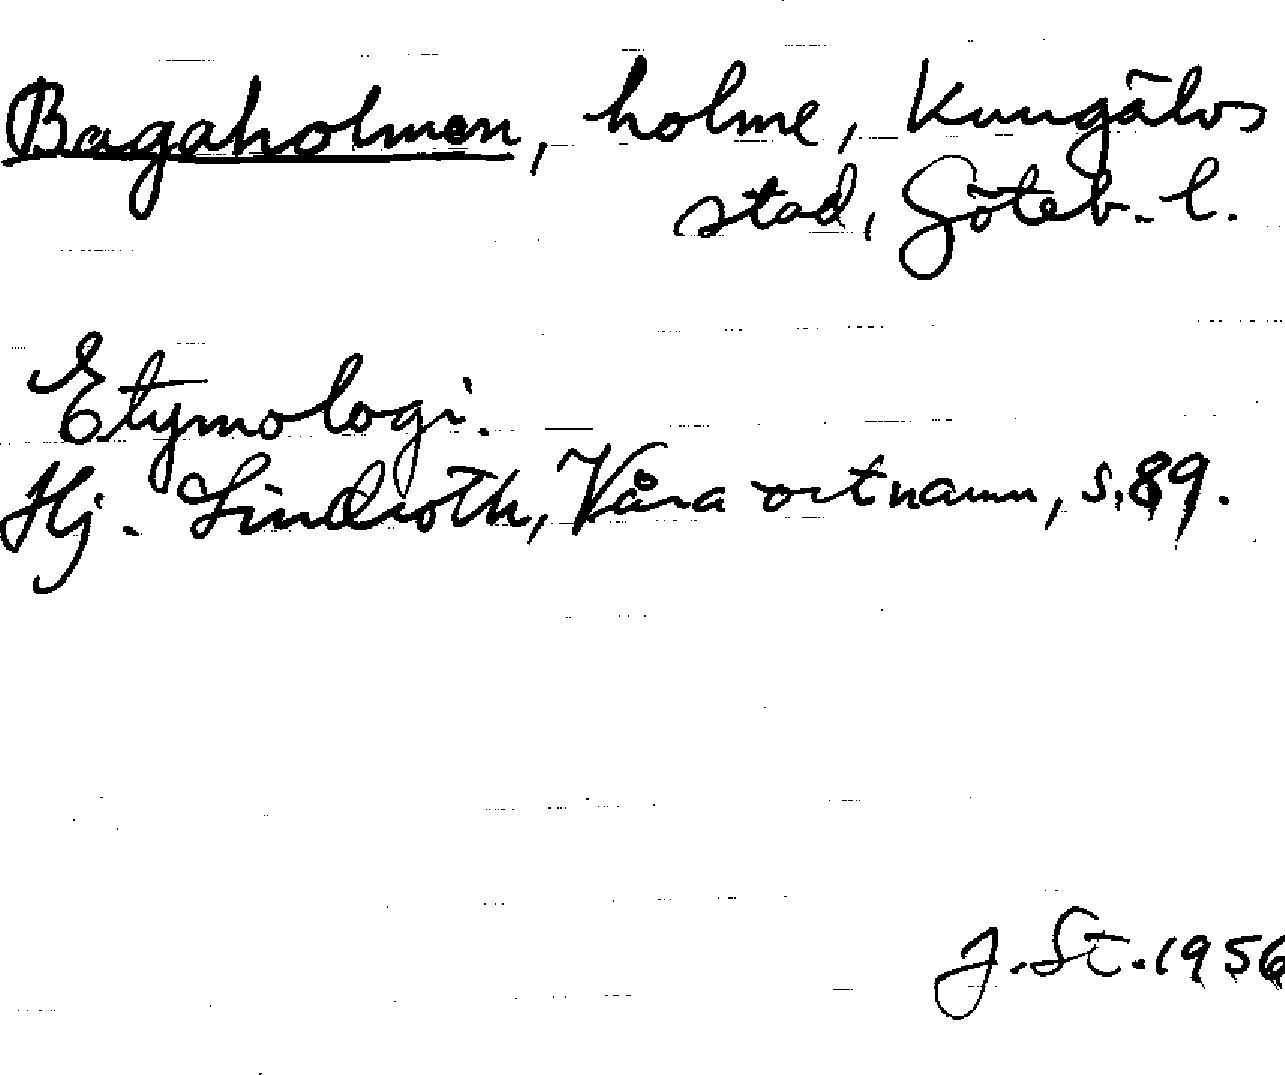 Bagaholmen, holme, Kungälvs
stad, Göteb. l.
Etymologi.
Hj. Lindroth, Våra ortnamn, s. 89.
J. St. 1956